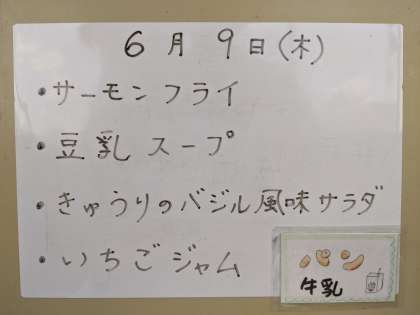 6月9日(木)
・サーモンフライ
・豆乳スープ
・きゅうりのバジル風味サラダ
・いちごジャム
パン
牛乳